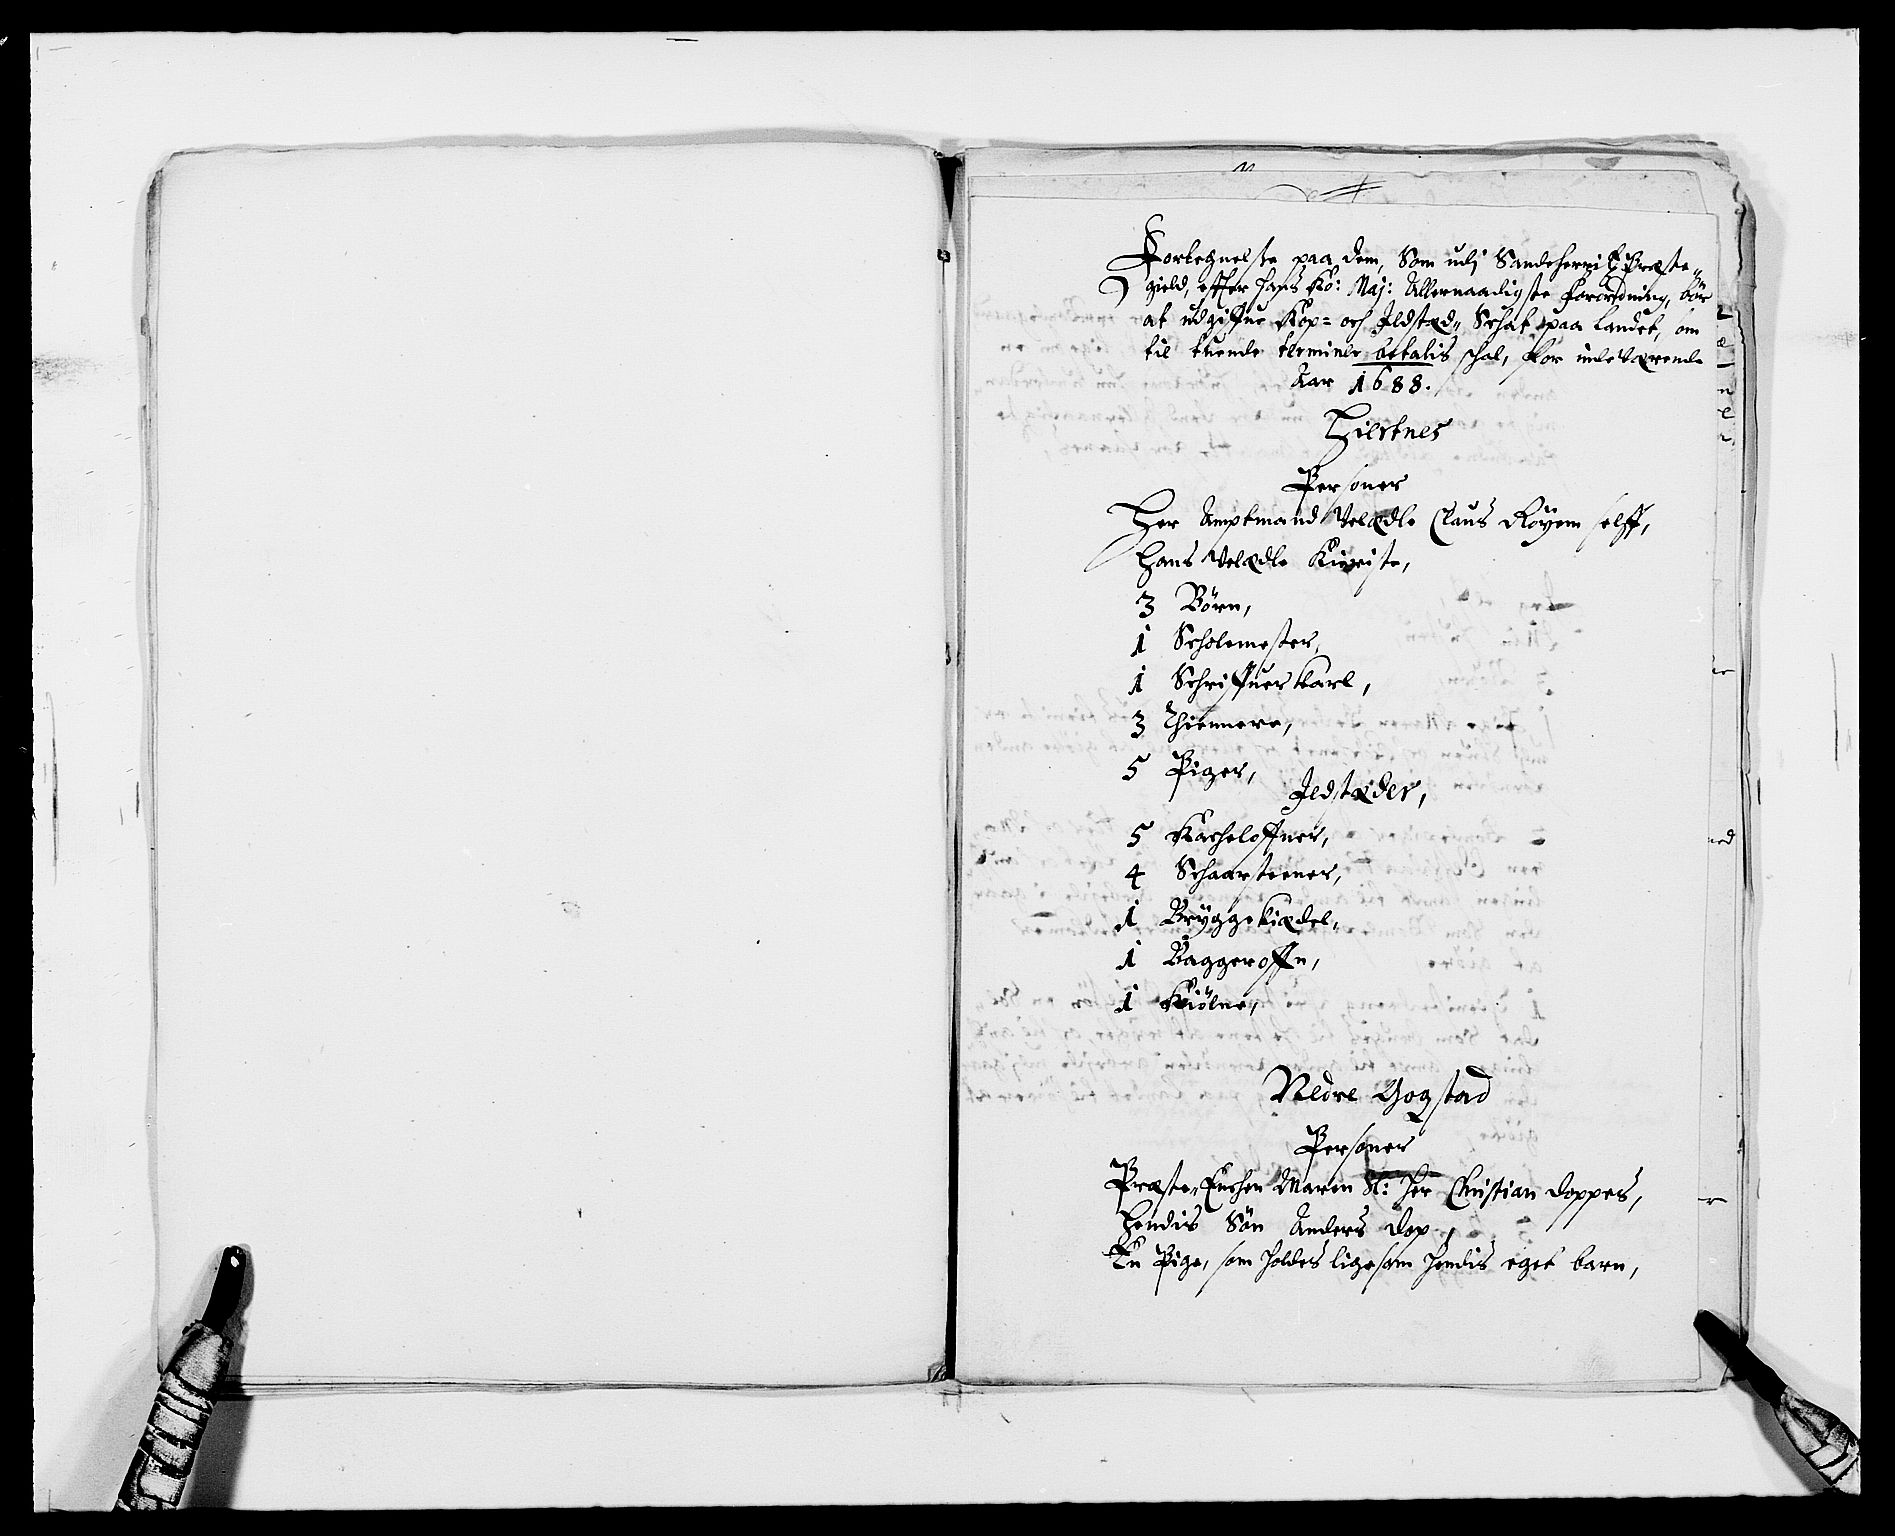 Fortegnelse paa dem, Som udj Sandeherrits Præste„
gield, effter Hans Ko: Maj: Allernaadigste forordning, bör
at udgiffue Kop= och Jldsted„ Schat paa Landet, om
til tuende terminer betalis schal, for indeværende
Aar 1688.
Hiertnes
Personer
Her Amptmand Velædle Claus Röyem selff,
Hans Velædle Kieriste,
3 Börn,
1 Scholemester,
1 Schriffuer karl,
3 Thiennere,
5 Piger,
Jldstæder,
5 Kacheloffner,
4 Schaarsteener,
1 Bryggekiædel,
1 Baggeroffn,
1 Kiölne,
Nedre Gogstad
Personer
Præste„ Enchen Maren Sl: Her Christian Doppes,
Hendis Sön Anders Dop,
En Pige, som holdes ligesom Hendis eget barn,